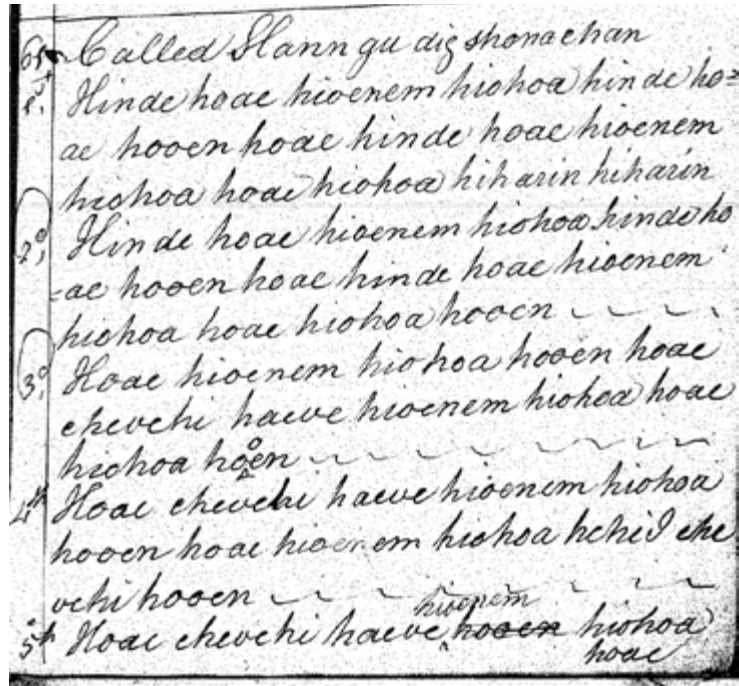 Called Slanngu dig shonachan
1st Hinde hoae hioenem hiohoa hinde ho=
ae hooen hoae hinde hoae hioenem
hiohoa hoae hiohoa hiharin hiharin
2,d Hinde hoae hioenem hiohoa hinde ho
=ae hooen hoae hinde hoae hioenem
hiohoa hoae hiohoa hooen
3,d Hoae hioenem hiohoa hooen hoae
chevchi haeve hioenem hiohoa hoae
hiohoa hooen
4th Hoae chevchi haeve hioenem hiohoa
hooen hoae hioenem hiohoa hchiI che
vchi hooen
hioenem
5th Hoae chevchi haeve hooen hiohoa
hoae